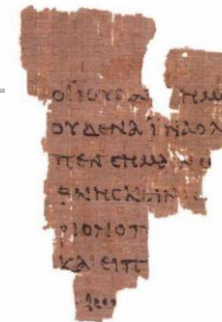 ΟΙ ΙΟΥΔΑΙ ΗΜ
ΟΥΔΕΝΑ ΙΝΑ Ο Λ
ΠΕΝ CΗΜΑΙΝΩ
ΘΝΗCΚΕΙΝ ΙC
ΡΙΟΝ Ο Π
ΚΑΙ ΕΙΠ